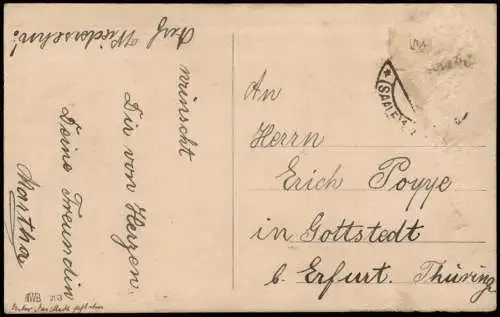 Auf Wiedersehn!
wünscht
Dir von Herzen
Deine Freundin
Martha
An
Herrn
Erich Poppe
in Gottstedt
b. Erfurt. Thüring
* (SAALE)